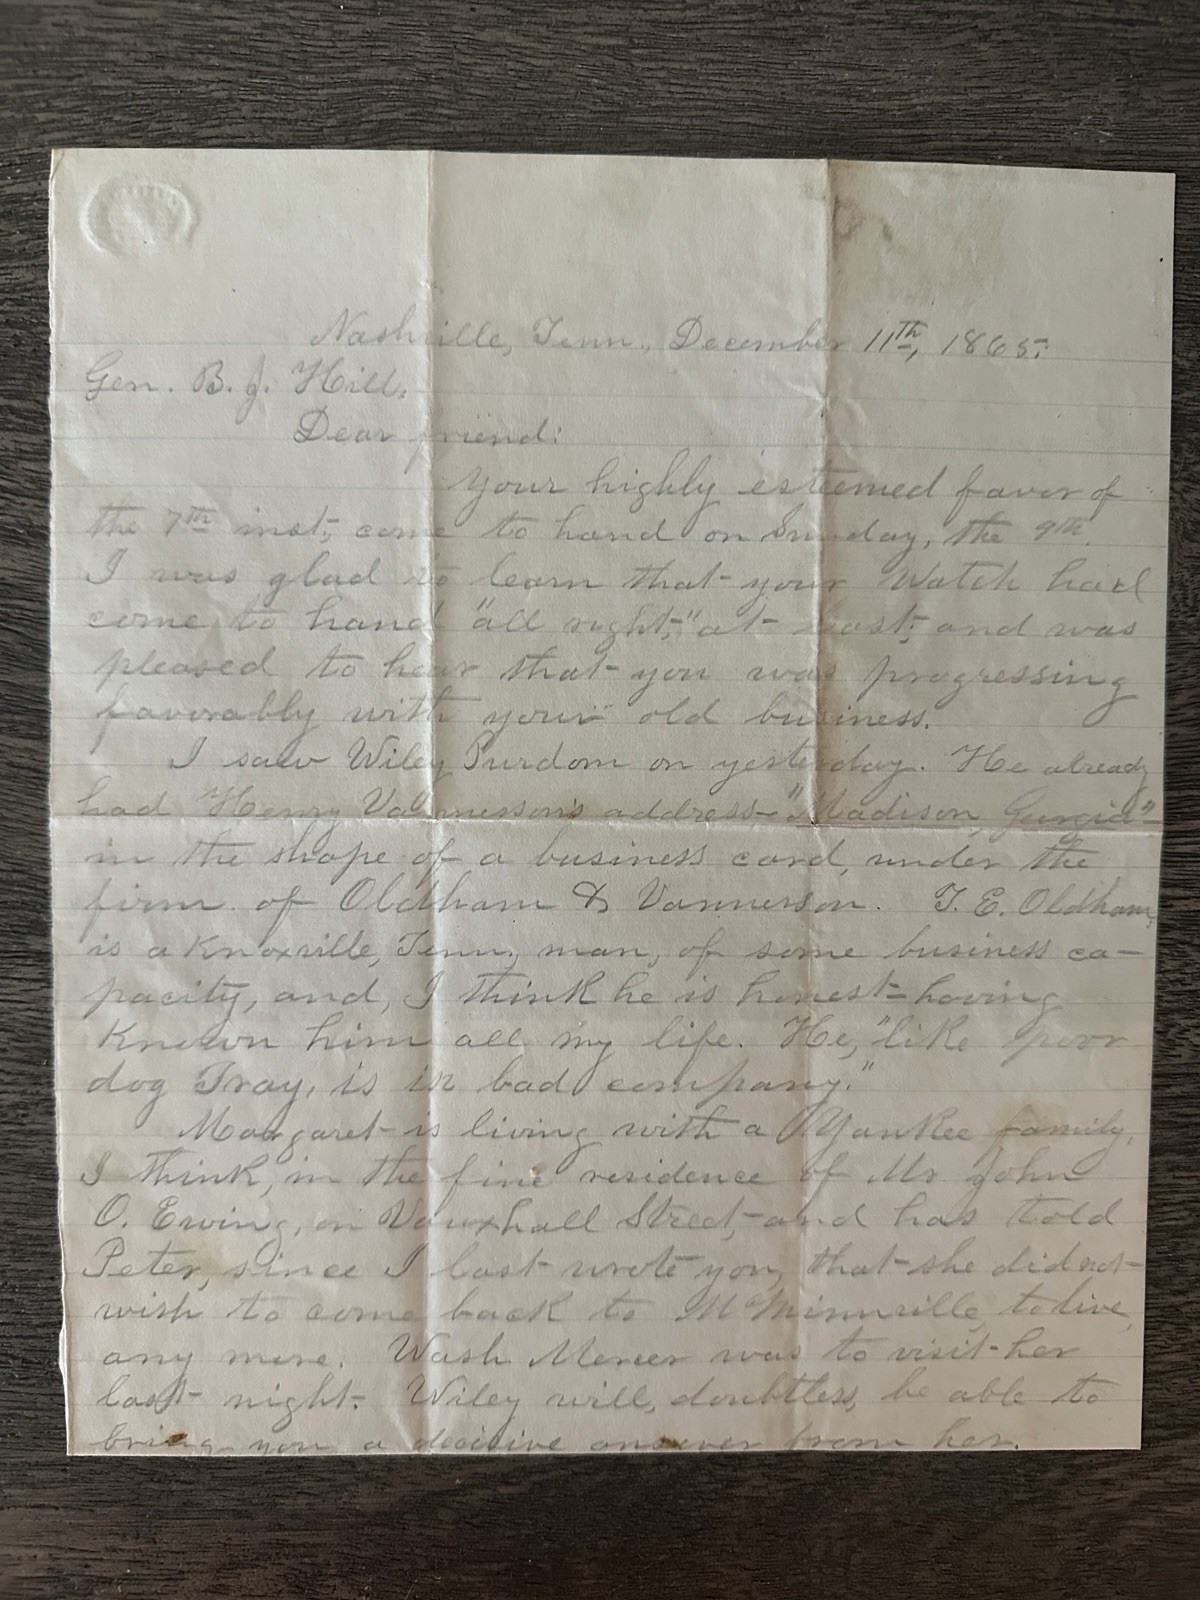 Nashville, Tenn., December 11th, 1865.
Gen. B. J. Hill.
Dear friend:
Your highly esteemed favor of
the 7th inst, came to hand on Sunday, the 9th.
I was glad to learn that your Watch had
come to hand "all right," at last; and was
pleased to hear that you was progressing
favorably with your old business.
I saw Wiley Purdom on yesterday. He already
had Henry Vannerson's address—"Madison, Georgia"—
in the shape of a business card, under the
firm of Oldham & Vannerson. T. E. Oldham,
is a Knoxville, Tenn, man, of some business ca-
pacity, and, I think he is honest—having
known him all my life. He, "like poor
dog Tray, is in bad company."
Margaret is living with a Yankee family,
I think, in the fine residence of Mr John
O. Ewing, on Vauxhall Street,—and has told
Peter, since I last wrote you, that she did not
wish to come back to McMinnville, to live,
any more. Wash Mercer was to visit her
last night. Wiley will, doubtless, be able to
bring you a decisive answer from her.